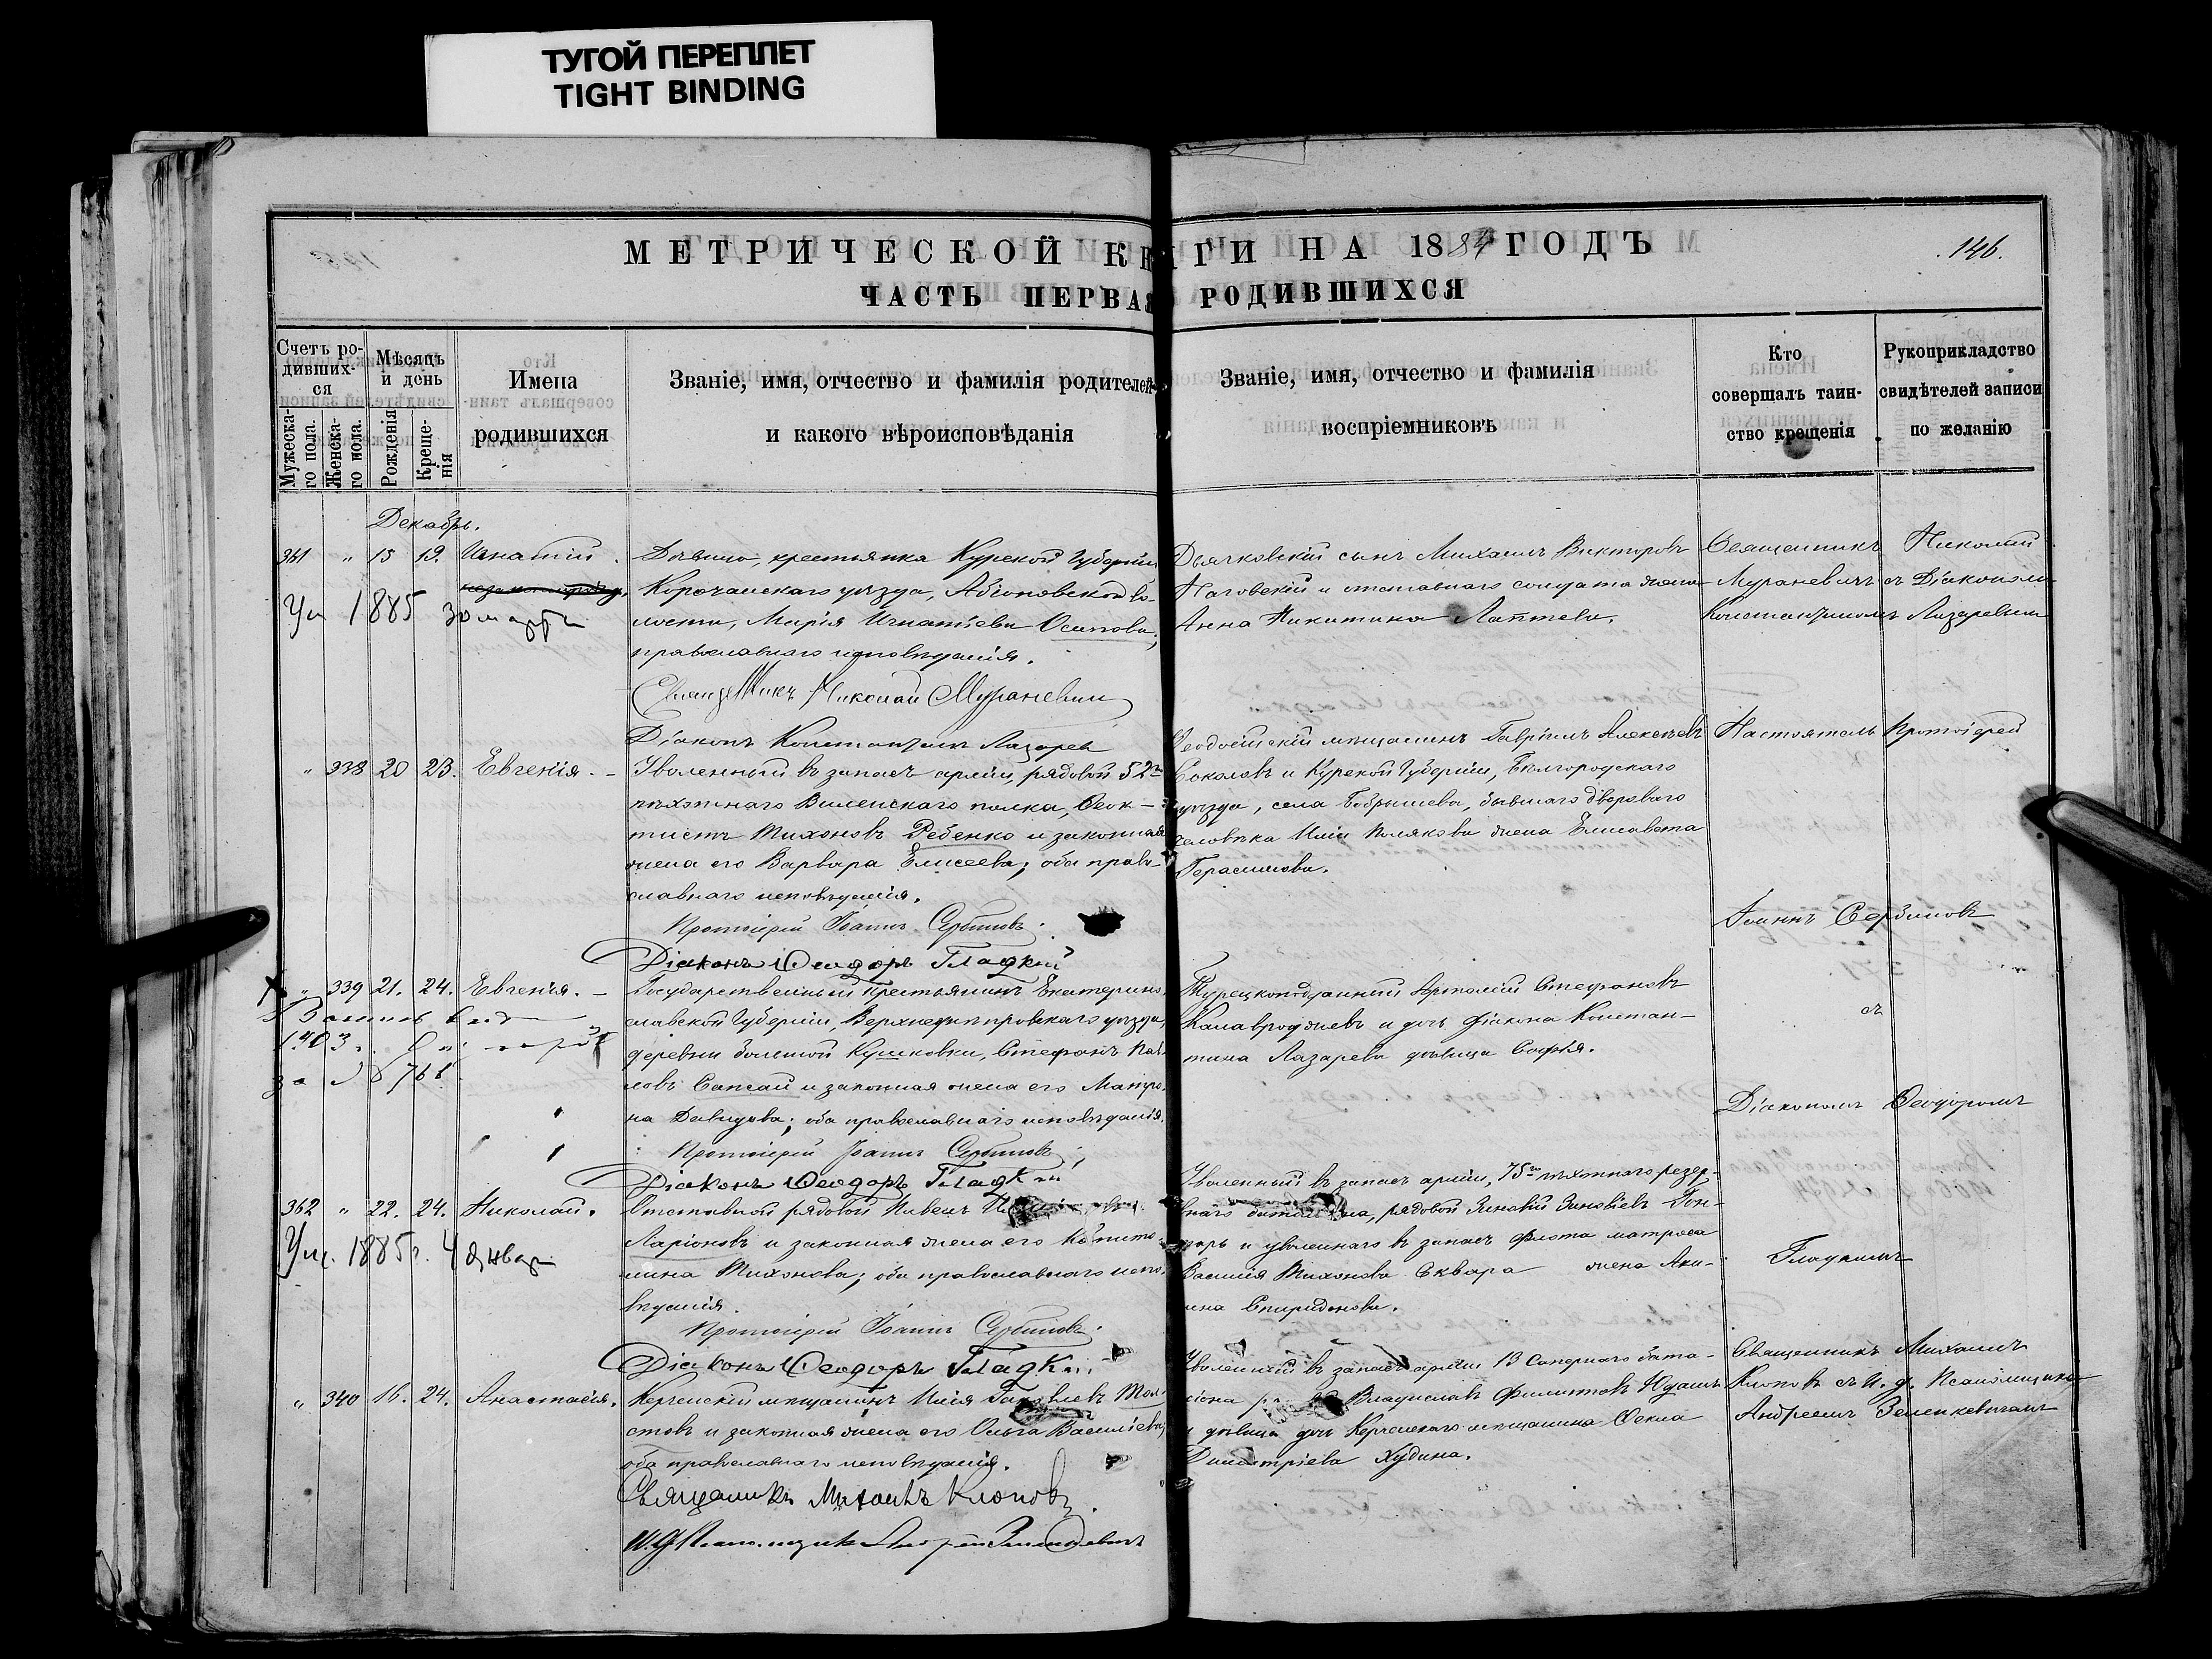 ТУГОЙ ПЕРЕПЛЕТ
TIGHT BINDING
МЕТРИЧЕСКОЙ КНИГИ НА 1884 ГОДЪ
146.
ЧАСТЬ ПЕРВАЯ РОДИВШИХСЯ
Счетъ ро-
дивших-
ся
Мужеска-
го пола.
Женска-
го пола.
Мѣсяцъ
и день
Рожденія
Креще-
нія
Имена
родившихся
Званіе, имя, отчество и фамилія родителей
и какого вѣроисповѣданія
Званіе, имя, отчество и фамилія
воспріемниковъ
Кто
совершалъ таин-
ство крещенія
Рукоприкладство
свидѣтелей записи
по желанію
Декабрь.
361 " 15 19. Игнатій.
Ум 1885 30 марта
Дѣвица, крестьянка Курской Губерніи
Корочанскаго уѣзда, во-
лости, Марія Игнатіева Осипова,
православнаго исповѣданія.
Священникъ Николай Мураневичъ
Діаконъ Константинъ Лазаревъ
Дьячковскій сынъ Михаилъ Викторовъ
Наговскій и отставнаго солдата жена
Анна Никитина Лаптева.
Священникъ Николай
Мураневичъ съ Діакономъ
Константиномъ Лазаревымъ
" 338 20 23. Евгенія. –
Уволенный въ запасъ арміи, рядовой 52го
пѣхотнаго Виленскаго полка, Ѳеок-
тистъ Тихоновъ Ребенко и законная
жена его Варвара Елисеева; оба право-
славнаго исповѣданія.
Протоіерей Іоаннъ Сербиновъ.
Діаконъ Ѳеодоръ Гладкій
Ѳеодосійскій мѣщанинъ Гавріилъ Алексѣевъ
Соколовъ и Курской Губерніи, Бѣлгородскаго
уѣзда, села Бобрышева, бывшаго двороваго
человѣка Иліи Полякова жена Елисавета
Герасимова.
Настоятель Протоіерей
Іоаннъ Сербиновъ
X " 339 21. 24. Евгенія. –
1903 г.
за № 766
Государственный крестьянинъ Екатерино-
славской Губерніи, Верхнеднѣпровскаго уѣзда,
деревни большой Кушковки, Стефанъ Пав-
ловъ Сапсай и законная жена его Матро-
на Давидова; оба православнаго исповѣданія.
Протоіерей Іоаннъ Сербиновъ.
Діаконъ Ѳеодоръ Гладкій
Турецкоподданный Стефановъ
и дочь діакона Констан-
тина Лазарева дѣвица Софья.
съ
Діакономъ Ѳеодоромъ
362 " 22. 24. Николай.
Ум. 1885 г. 4 Январ
Отставной рядовой Павелъ
Ларіоновъ и законная жена его Капито-
лина Тихонова; оба православнаго испо-
вѣданія.
Протоіерей Іоаннъ Сербиновъ.
Діаконъ Ѳеодоръ Гладкій
Уволенный въ запасъ арміи, 75го пѣхотнаго резер-
внаго баталіона, рядовой Зиновій Зиновіевъ Гон-
чаръ и уволеннаго въ запасъ флота матроса
Василія Тихонова Сквара жена Аки-
лина Спиридонова.
Гладкимъ
" 340 16. 24. Анастасія.
Керченскій мѣщанинъ Илія Іаковлевъ Тол-
стовъ и законная жена его Ольга Васильева;
оба православнаго исповѣданія.
Священникъ Михаилъ Клоповъ.
И. д. Псаломщика Андрей Зеленкевичъ
Уволенный въ запасъ арміи 13 Сапернаго бата-
ліона Владиславъ Филиповъ Юдашъ
и дѣвица дочь Керченскаго мѣщанина Ѳекла
Димитріева Худина.
Священникъ Михаилъ
Клоповъ съ и. д. Псаломщика
Андреемъ Зеленкевичемъ